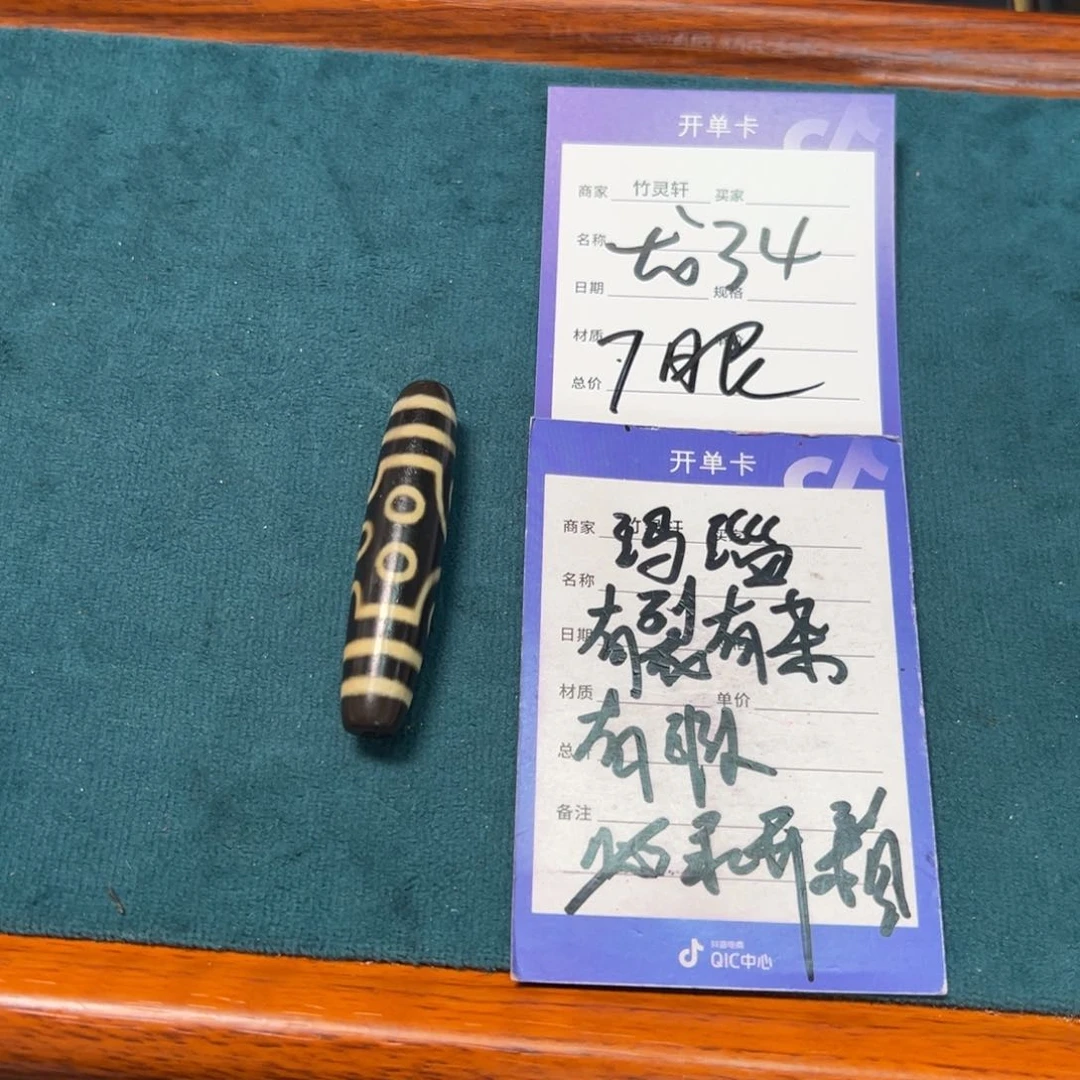 开单卡
商家 竹灵轩 买家
名称 34
日期 规格
材质
7眼
总价
开单卡
商家 竹灵轩
玛瑙
名称
有裂有杂
日期
材质 单价
有瑕
总
备注
抖音电商
QIC中心